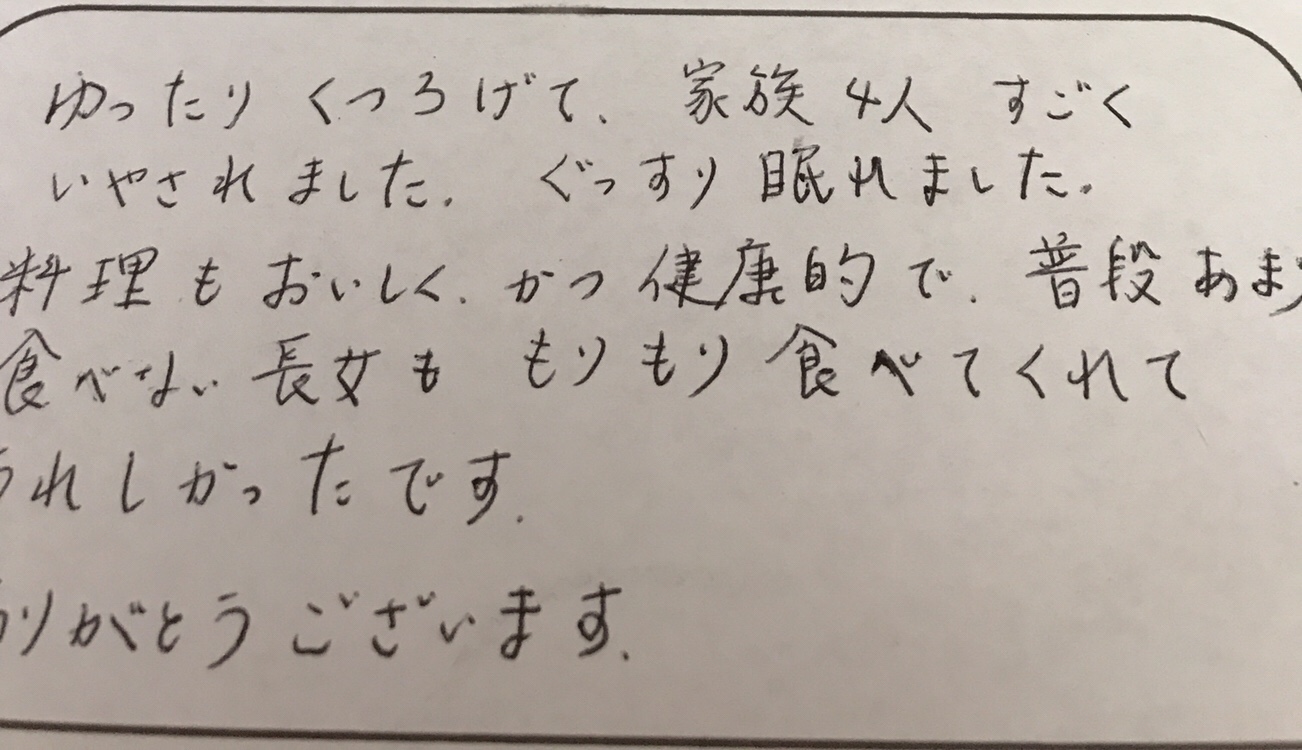 ゆったりくつろげて、家族4人 すごく
いやされました。 ぐっすり眠れました。
料理もおいしく、かつ健康的で、普段あまり
食べない長女も もりもり食べてくれて
うれしかったです。
ありがとうございます。